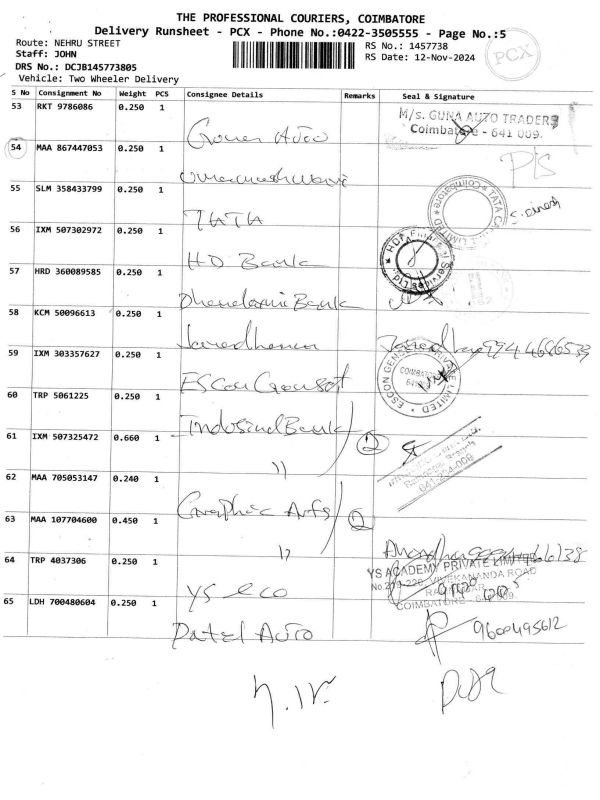 THE PROFESSIONAL COURIERS, COIMBATORE
Delivery Runsheet - PCX - Phone No.:0422-3505555 - Page No.:5
Route: NEHRU STREET
RS No.: 1457738
PCX
Staff: JOHN
RS Date: 12-Nov-2024
DRS No.: DCJB145773805
Vehicle: Two Wheeler Delivery
S No Consignment No Weight PCS Consignee Details Remarks Seal & Signature
53 RKT 9786086 0.250 1
M/s. GUNA AUTO TRADERS
Coimbatore - 641 009.
Auto
54 MAA 867447053 0.250 1
P/S
55 SLM 358433799 0.250 1
TATA
S. Dinesh
56 IXM 507302972 0.250 1
HD Bank
57 HRD 360089585 0.250 1
Dhanalaxmi Bank
58 KCM 50096613 0.250 1
Janardhanan
9944686533
59 IXM 303357627 0.250 1
ESCON GENSET PRIVATE LIMITED
COIMBATORE
Escon Genset
60 TRP 5061225 0.250 1
IndusindBank
2
61 IXM 507325472 0.660 1
11
641 009
62 MAA 705053147 0.240 1
Graphic Arts
2
63 MAA 107704600 0.450 1
11
64 TRP 4037306 0.250 1
YS ACADEMY PRIVATE LIMITED
No.219-220, VIVEKANANDA ROAD
COIMBATORE - 641 009
YS eco
65 LDH 700480604 0.250 1
9600495612
Patel Auto